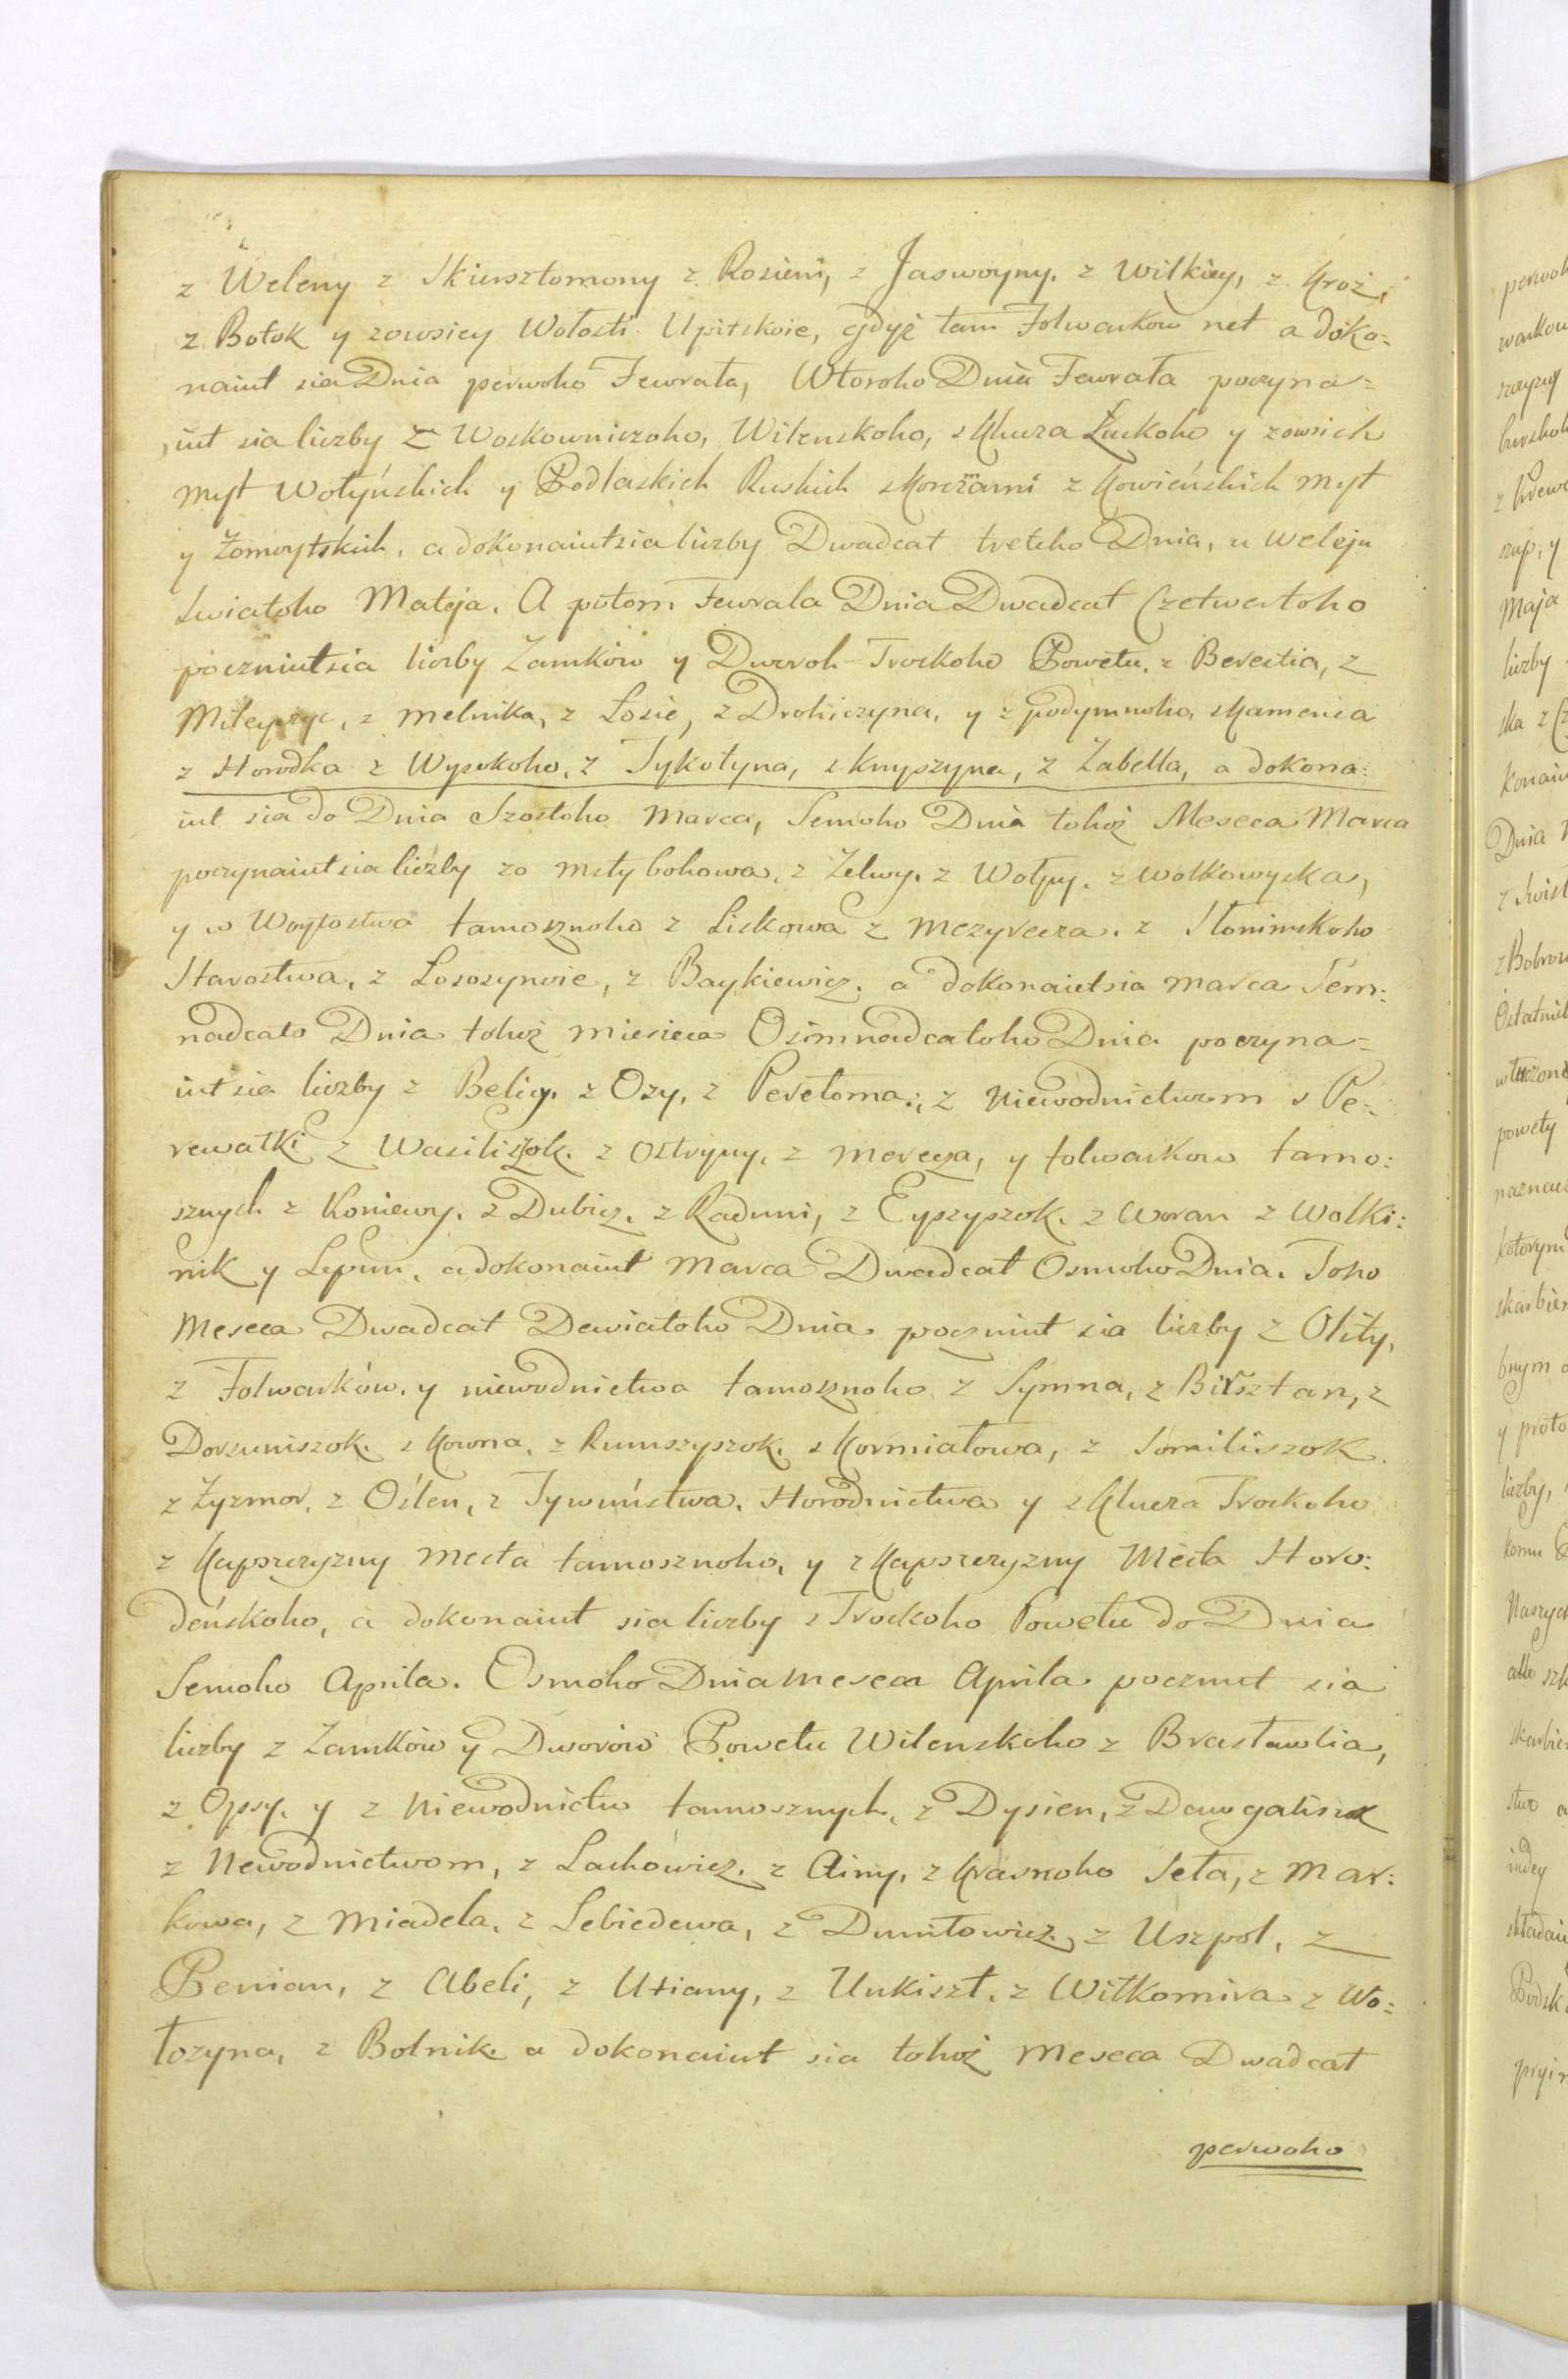 z Weleny z Skiersztomony z Rosieni, z Jaswoyny. z Wilkiey, z Kroż,
z Botok y zowsiey Wołosti Upitskoie, gdyż tam Folwarkow net a doko=
naiut sia Dnia perwoho Fewrała, Wtoroho Dnia Fewrała poczyna=
iut sia liczby z Woskowniczoho, Wilenskoho, z Klucza Łuckoho y zowsich
myt Wołyńskich y Podlaskich Ruskich z Korczami z Kowieńskich myt
y Żomoytskich, a dokonaiutsia liczby Dwadcat tretcho Dnia, u Weleju
Swiatoho Mateja. A potom Fewrala Dnia Dwadcat Czetwertoho
poczniutsia liczby Zamków y Dworoh Trockoho Powetu. z Berestia, z
Mileyczyc, z Melnika, z Łosic, z Drohiczyna, y z podymnoho, z Kamenca
z Horodka z Wysokoho, z Tykotyna, z Knyszyna, z Zabella, a dokona:
iut sia do Dnia Szostoho Marca, Semoho Dnia tohoż Meseca Marca
poczynaiutsia liczby zo Mstybohowa, z Zelwy. z Wołpy. z Wołkowyska,
y w Woytostwa tamosznoho z Liskowa z Mezyrecza. z Słonimskoho
Starostwa, z Łososynoie, z Baykiewicz. a dokonaiutsia Marca Sem:
nadcato Dnia tohoż miesieca Osimnadcatoho Dnia poczyna=
iutsia liczby z Belicy. z Ozy, z Perełoma:, z Niewodnictwom s Pe:
rewałki z Wasiliszok. z Ostryny, z Merecza, y folwarkow tamo:
sznych z Koniewy. z Dubicz. z Raduni, z Eyszyszok. z Woran z Wolki:
nik y Lepun, a dokonaiut Marca Dwadcat Osmoho Dnia. Toho
Meseca Dwadcat Dewiatoho Dnia poczniut sia liczby z Olity,
z Folwarków. y niewodnictwa tamosznoho z Symna, z Birsztan, z
Dorsuniszok. z Kowna, z Rumszyszok. z Kormiałowa, z Somiliszok.
z Żyzmor. z Ośten, z Tywuństwa. Horodnictwa y z Klucza Trockoho
z Kapszczyzny Mesta tamosznoho, y z Kapszczyzny Mesta Horo:
deńskoho, a dokonaiut sia liczby z Trockoho Powetu do Dnia
Semoho Aprila. Osmoho Dnia Meseca Aprila poczniut sia
liczby z Zamków y Dworów Powetu Wilenskoho z Brasławlia,
z Opsy. y z Niewodnictw tamosznych, z Dysien, z Dawgaliszok
z Newodnictwom, z Lachowicz. z Ainy. z Krasnoho Seła, z Mar:
kowa, z Miadela, z Lebiedewa, z Dunilowicz. z Uszpol, z
Penian, z Abeli, z Utiany, z Unkiszt. z Wiłkomira z Wo:
łożyna, z Bolnik a dokonaiut sia tohoż Meseca Dwadcat
perwoho